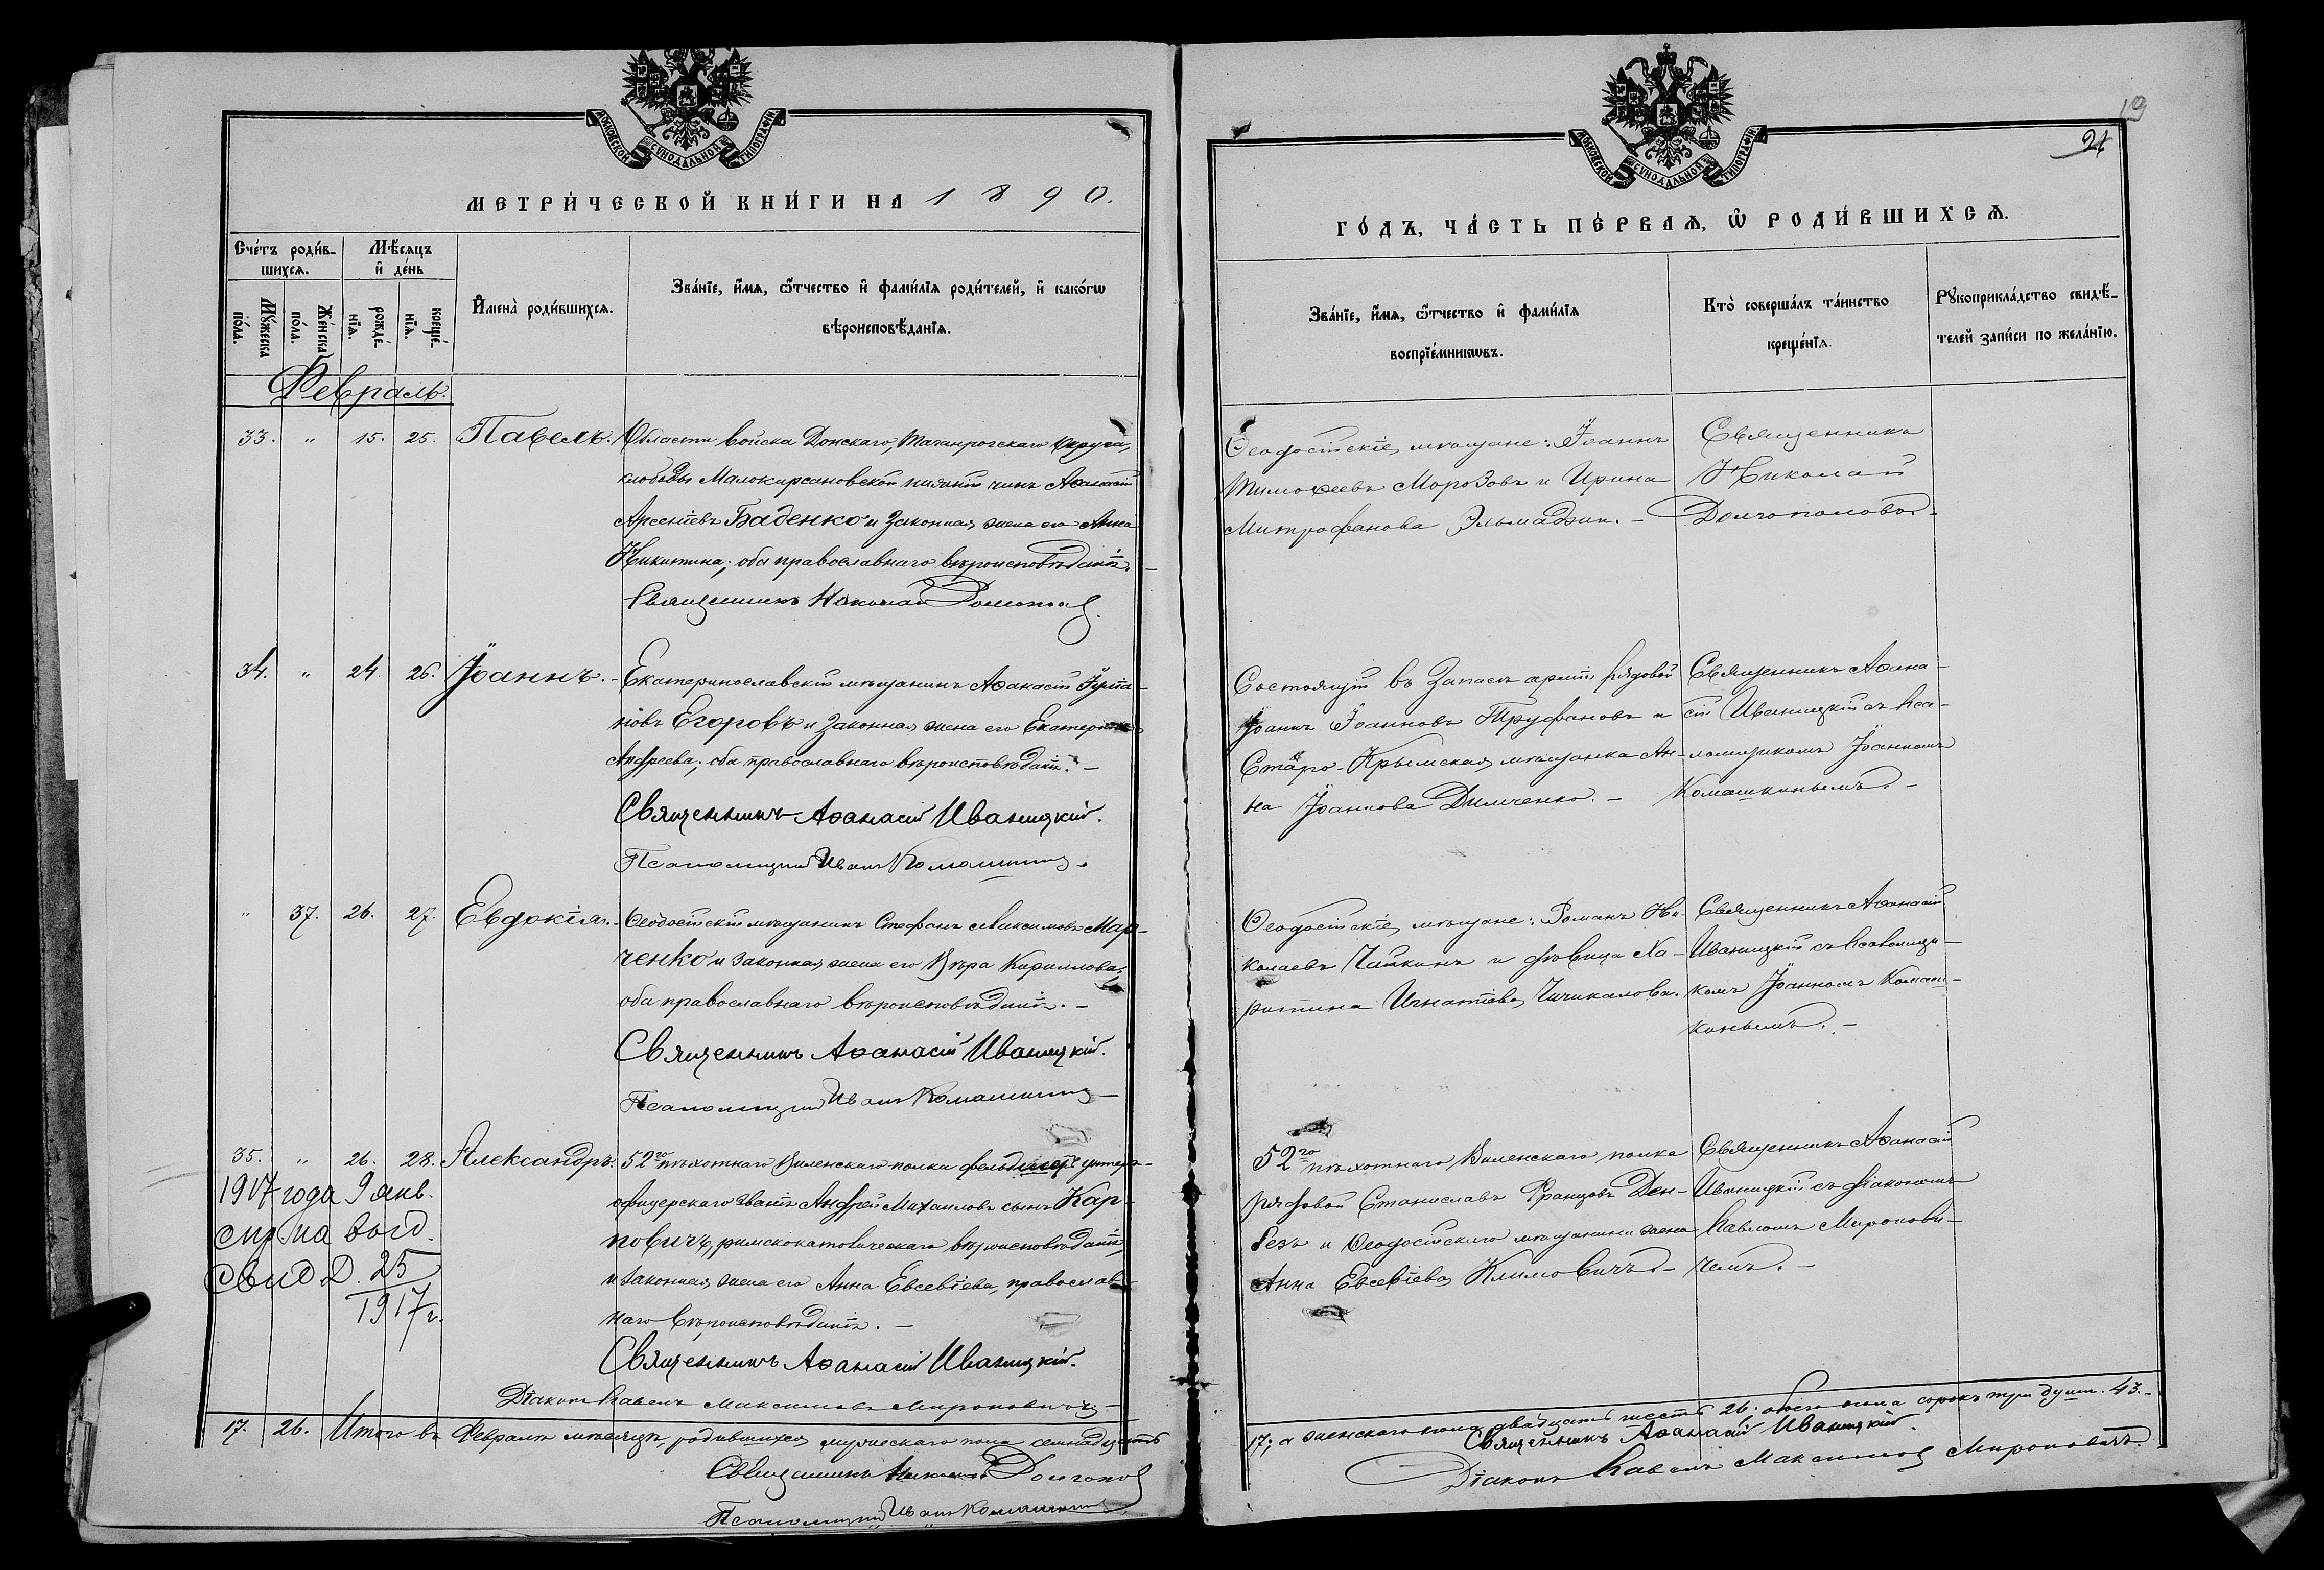 МОСКОВСКОЙ СѴНОДАЛЬНОЙ ТИПОГРАФІИ
МЕТРИ́ЧЕСКОЙ КНИ́ГИ НА 1890.
Сче́тъ роди́в-
шихсѧ.
Мѣ́сѧцъ
и҆ де́нь
Мꙋ́жеска
по́ла.
Же́нска
по́ла.
рожде́-
нїѧ.
креще́-
нїѧ.
И҆мена̀ роди́вшихсѧ.
Зва́нїе, и҆́мѧ, ѻ҆́тчество и҆ фами́лїѧ роди́телей, и҆ како́гѡ
вѣроисповѣ́данїѧ.
Февраль.
33. " 15. 25. Павелъ. Области войска Донскаго, Таганрогскаго Округа,
слободы Малокирсановской нижній чинъ Аѳанасій
Арсеніевъ Баденко и законная жена его Анна
Никитина; оба православнаго вѣроисповѣданія.
Священникъ Николай
34. " 24. 26. Іоаннъ. Екатеринославскій мѣщанинъ Аѳанасій Юліа-
новъ Егоровъ и законная жена его Екатерина
Андреева; оба православнаго вѣроисповѣданія. –
Священникъ Аѳанасій Иваницкій.
Псаломщикъ Иванъ Комашкинъ
" 37. 26. 27. Евдокія. Ѳеодосійскій мѣщанинъ Стефанъ Максимовъ Мар-
ченко и законная жена его Вѣра Кириллова,
оба православнаго вѣроисповѣданія. –
Священникъ Аѳанасій Иваницкій.
Псаломщикъ Иванъ Комашкинъ
35. " 26. 28. Александръ. 52го пѣхотнаго Виленскаго полка фельдшеръ унтеръ-
офицерскаго званія Андрей Михаиловъ сынъ Кар-
повичъ, римскокатолическаго вѣроисповѣданія,
и законная жена его Анна Евсевіева, православ-
наго вѣроисповѣданія. –
Священникъ Аѳанасій Иваницкій.
Діаконъ Павелъ Максимовъ Мироновичъ
1917 года 9 янв.
выд.
свид. 25
1917 г.
17. 26. Итого въ Февралѣ мѣсяцѣ родившихся мужескаго пола семнадцать
Священникъ Николай Долгопол
Псаломщикъ Иванъ Комашкинъ
МОСКОВСКОЙ СѴНОДАЛЬНОЙ ТИПОГРАФІИ
19
ГО́ДЪ, ЧА́СТЬ ПЕ́РВАѦ, Ѡ҆ РОДИ́ВШИХСѦ.
Зва́нїе, и҆́мѧ, ѻ҆́тчество и҆ фами́лїѧ
воспрїе́мникѡвъ.
Кто̀ соверша́лъ та́инство
креще́нїѧ.
Рꙋкоприкла́дство свидѣ́-
телей за́писи по жела́нїю.
Ѳеодосійскіе мѣщане: Іоаннъ
Тимоѳеевъ Морозовъ и Ирина
Митрофанова Эльмаджи. –
Священникъ
Николай
Долгополовъ. –
Состоящій въ запасѣ арміи рядовой
Іоаннъ Іоанновъ Труфановъ и
Старо-Крымская мѣщанка Ан-
на Іоаннова Димченко. –
Священникъ Аѳана-
сій Иваницкій съ Пса-
ломщикомъ Іоанномъ
Комашкинымъ. –
Ѳеодосійскіе мѣщане: Романъ Ни-
колаевъ Чайкинъ и дѣвица Ха-
ритина Игнатіева Чичикалова.
Священникъ Аѳанасій
Иваницкій съ Псаломщи-
комъ Іоанномъ Комаш-
кинымъ. –
52го пѣхотнаго Виленскаго полка
рядовой Станиславъ Францовъ Ден-
безъ и Ѳеодосійскаго мѣщанина жена
Анна Евсевіева Климовичъ. –
Священникъ Аѳанасій
Иваницкій съ діакономъ
Павломъ Миронови-
чемъ. –
17; а женскаго пола двадцать шесть 26. обоего пола сорокъ три душ. 43. –
Священникъ Аѳанасій Иваницкій
Діаконъ Павелъ Максимовъ Мироновичъ.